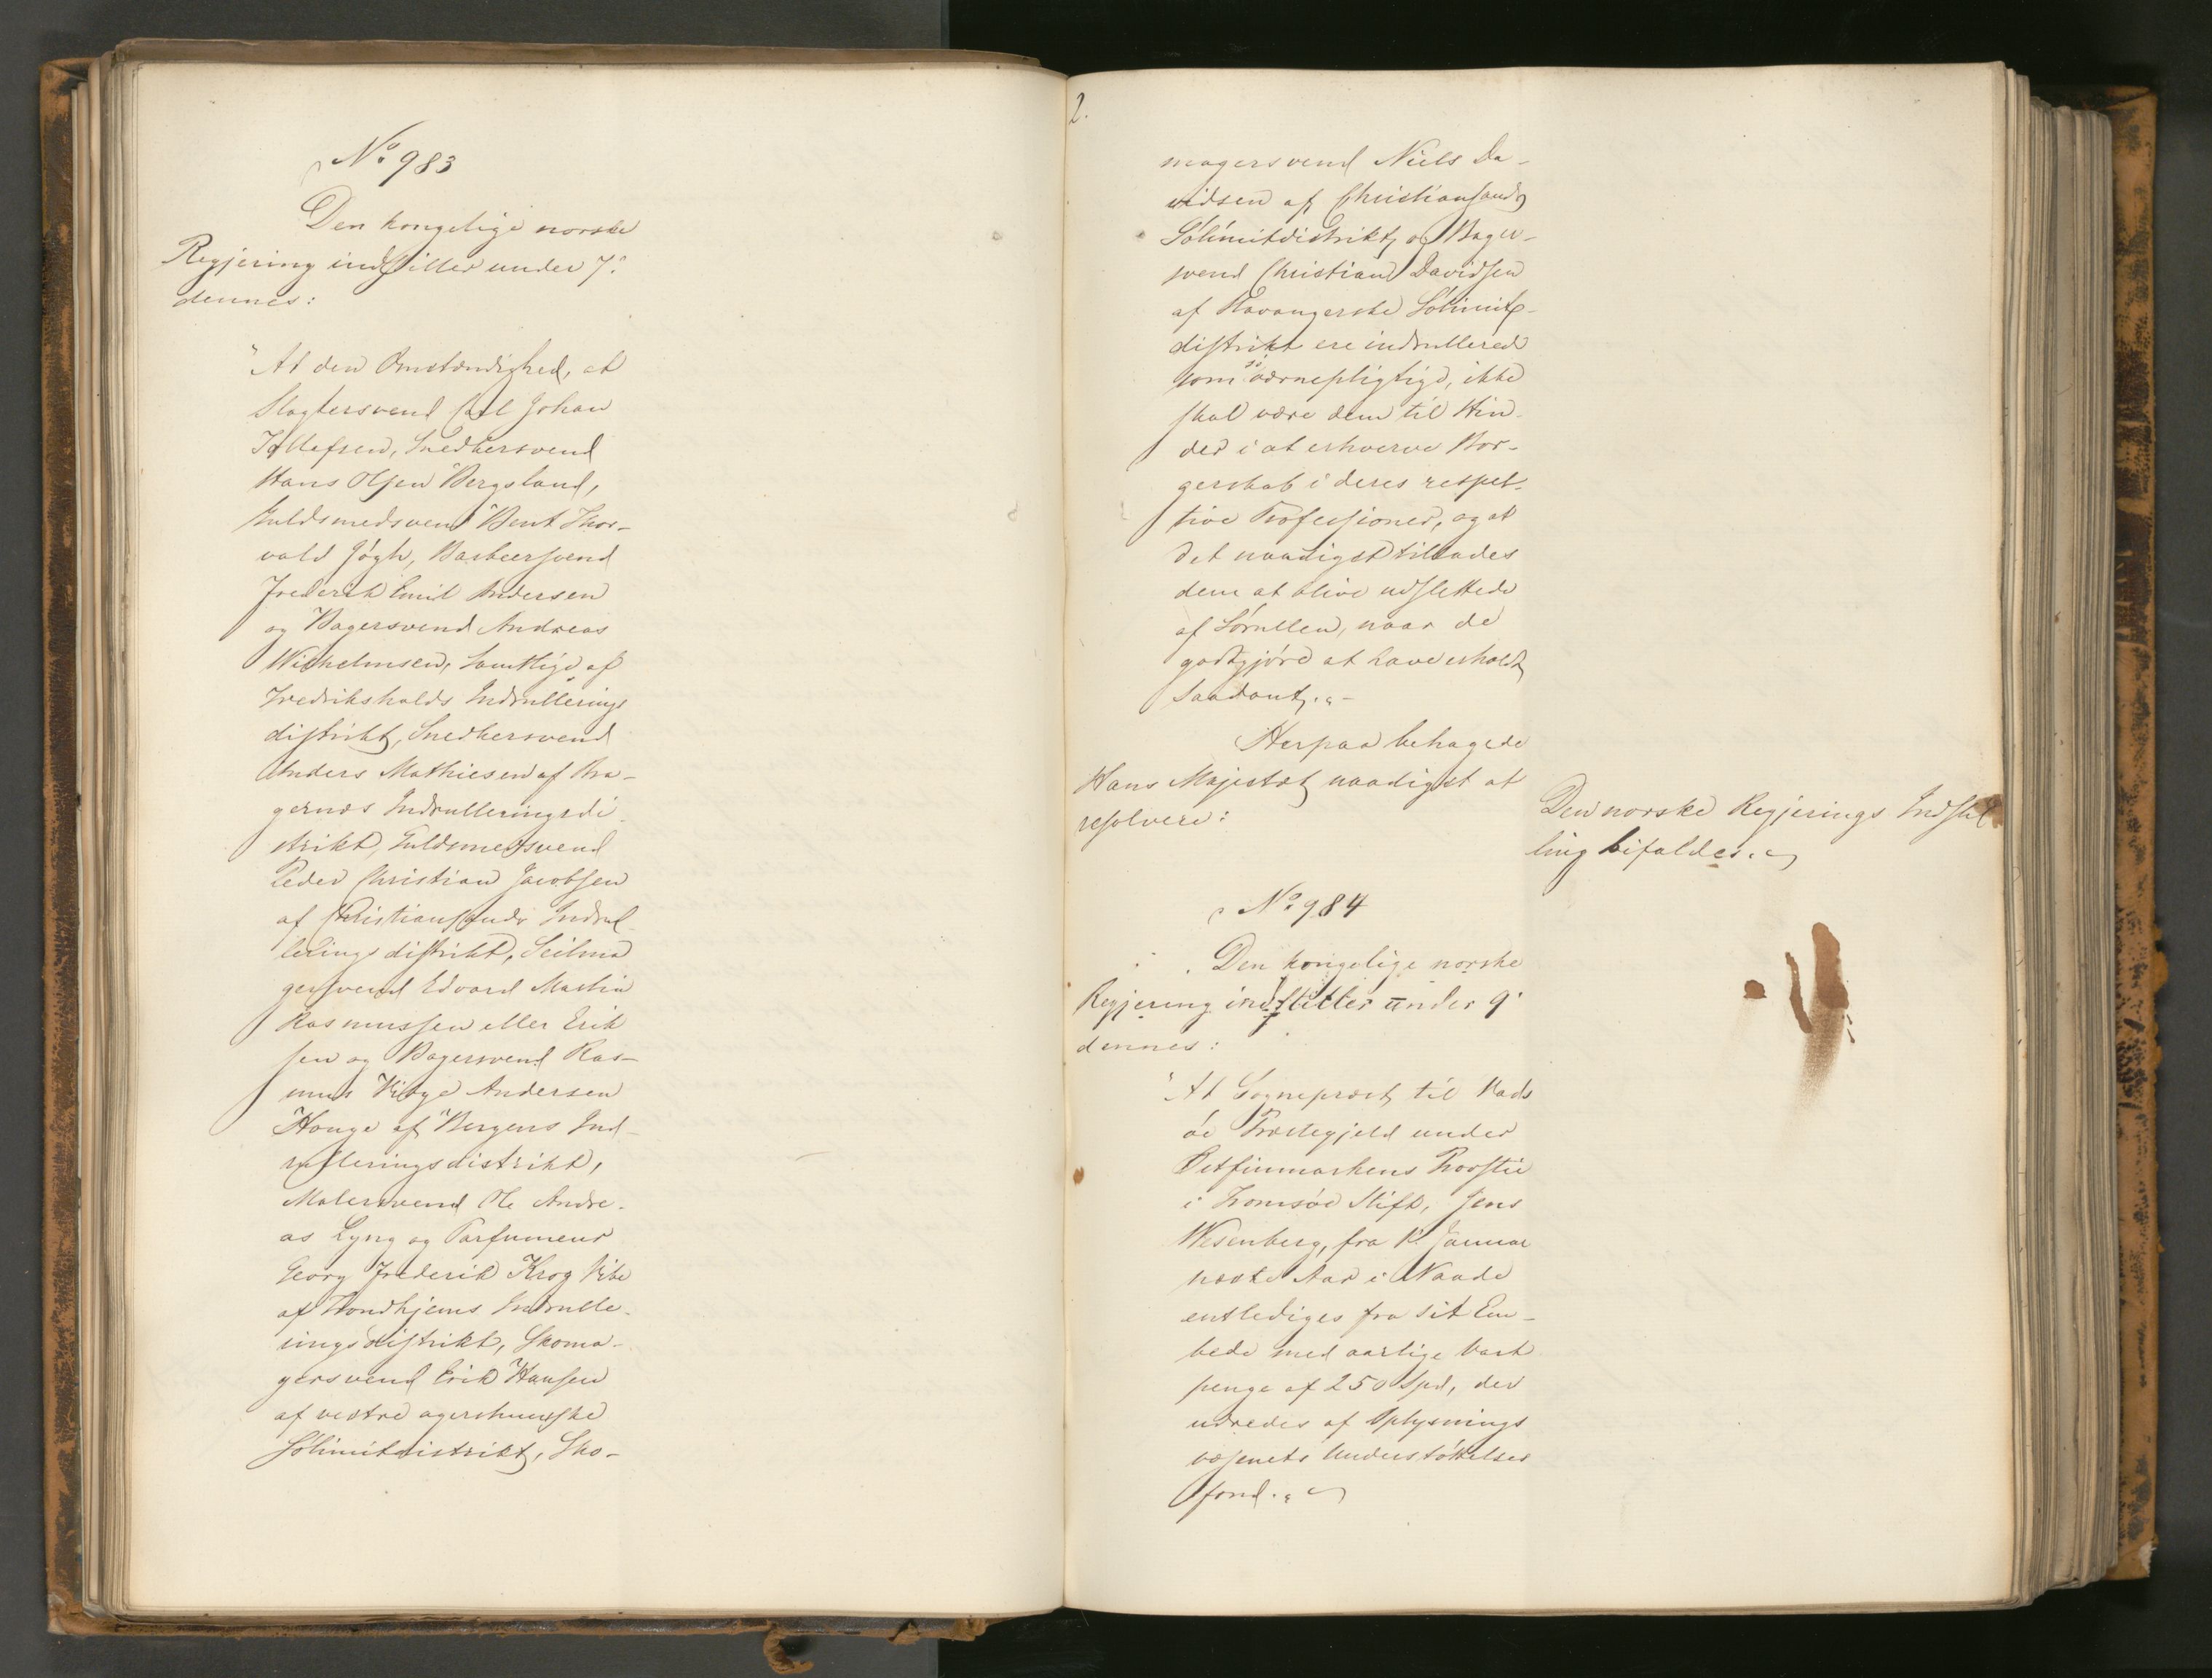 No 983
Den kongelige norske
Regjering indstiller under 7.
dennes:
"At den Omstændighed, at
Slagtersvend Carl Johan
Tollefsen, Snedkersvend
Hans Olsen Bergsland,
Guldsmedsvend Bent Thor-
vald Jøgh, Barbeersvend
Frederik Emil Andersen
og Bagersvend Andreas
Wilhelmsen, samtlige af
Fredrikshalds Indrullerings
distrikt, Snedkersvend
Anders Mathiesen af Bra-
gernæs Indrulleringsdi-
strikt, Guldsmedsvend
Peder Christian Jacobsen
af Christiansands Indrul-
lerings distrikt, Seilma
gersvend Edvard Martin
Rasmussen eller Erik
sen og Bagersvend Ras-
mus Andersen
Houge af Bergens Ind-
rulleringsdistrikt,
Malersvend Ole Andre-
as Lyng og Parfumeur
Georg Frederik Krog Vibe
af Trondhjems Indrulle-
ringsdistrikt, Skoma-
gersvend Erik Hansen
af vestre agershuusske
Sølimitdistrikt, Sko-
2.
magersvend Niels Da-
vidsen af Christiansands
Sølimitdistrikt, og Bager-
svend Christian Davidsen
af Stavangerske Sølimit-
distrikt ere indrullerede
som søværnepligtige, ikke
skal være dem til Hin-
der i at erhverve Bor-
gerskab i deres respek-
tive Professioner, og at
det naadigst tillades
dem at blive udslettede
af Sørullen, naar de
godtgjøre at have erholdt
saadant."-
Herpaa behagede
Hans Majestæt naadigst at
resolvere:
Den norske Regjerings Indstil
ling bifaldes.
No 984
Den kongelige norske
Regjering indstiller under 9.
dennes:
"At Sogneprest til Vads
øe Præstegjeld under
Østfinmarkens Provstie
i Tromsøe Stift, Jens
Wesenberg, fra 1. Januar
næste Aar i Naade
entlediges fra sit Em-
bede med aarlige Vart
penge af 250 Spd, der
udredes af Oplysnings
væsenets Understøttelses
fond."